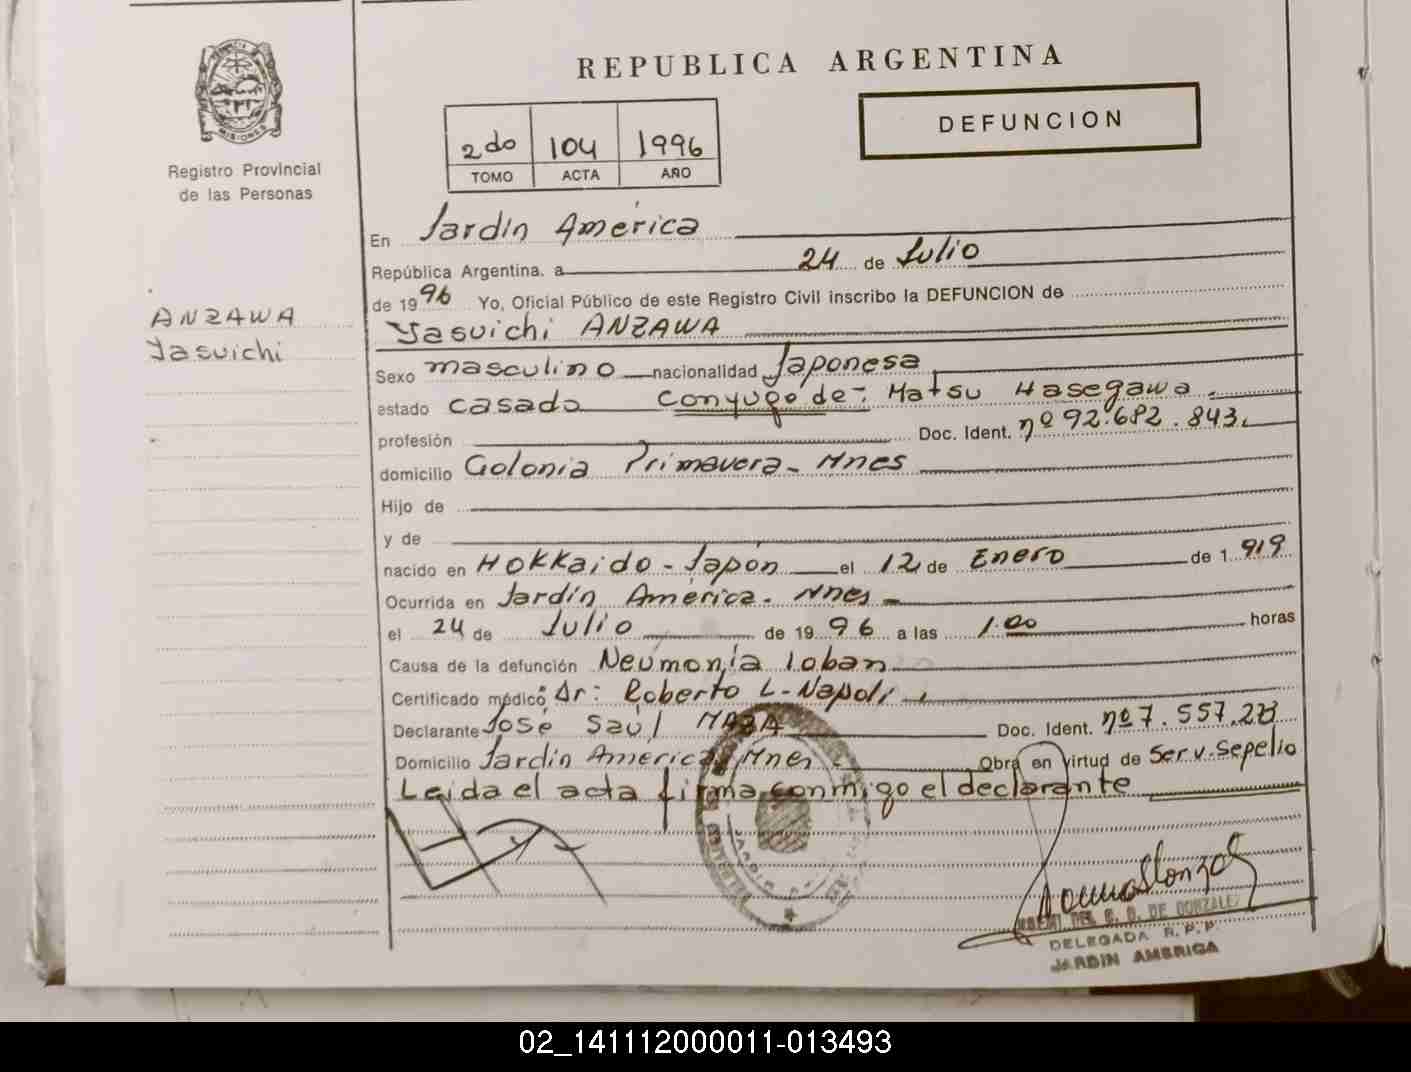 REPUBLICA ARGENTINA
PROVINCIA DE
MISIONES
Registro Provincial
de las Personas
2do 104 1996
TOMO ACTA AÑO
DEFUNCION
ANZAWA
Yasuichi
En Jardín América
República Argentina, a 24 de Julio
de 1996 Yo, Oficial Público de este Registro Civil inscribo la DEFUNCION de
Yasuichi ANZAWA
Sexo masculino nacionalidad Japonesa
estado casado conyuge de: Matsu Hasegawa
profesión Doc. Ident. nº 92.682.843.
domicilio Colonia Primavera - Mnes
Hijo de
y de
nacido en Hokkaido - Japón el 12 de Enero de 1919
Ocurrida en Jardín América - Mnes -
el 24 de Julio de 1996 a las 1.00 horas
Causa de la defunción Neumonía loban
Certificado médico Dr: Roberto L. Napoli
Declarante José Saúl Doc. Ident. nº 7.557.
Domicilio Jardín América Mnes. Obra en virtud de Serv. Sepelio
Leída el acta firma conmigo el declarante
DE GONZALEZ
DELEGADA R.P.P.
JARDIN AMERICA
02_141112000011-013493